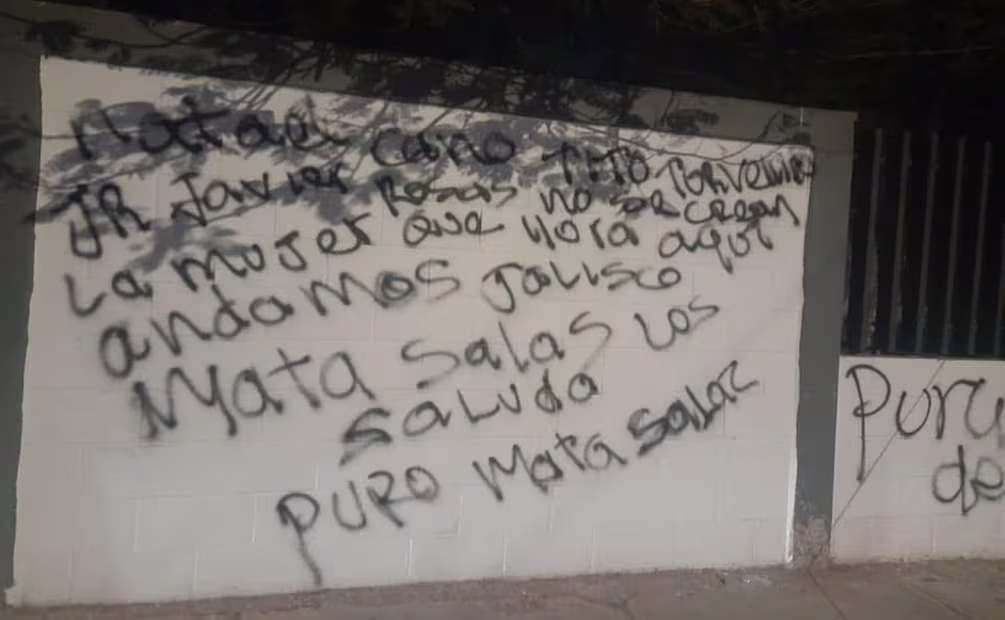 Natael cano TITO TORVELLINO
JR Javier Rosas no se crean
La mujer que llora aqui
andamos Jalisco
Mata salas los
saluda
PURO Mata salaz
Pura
de